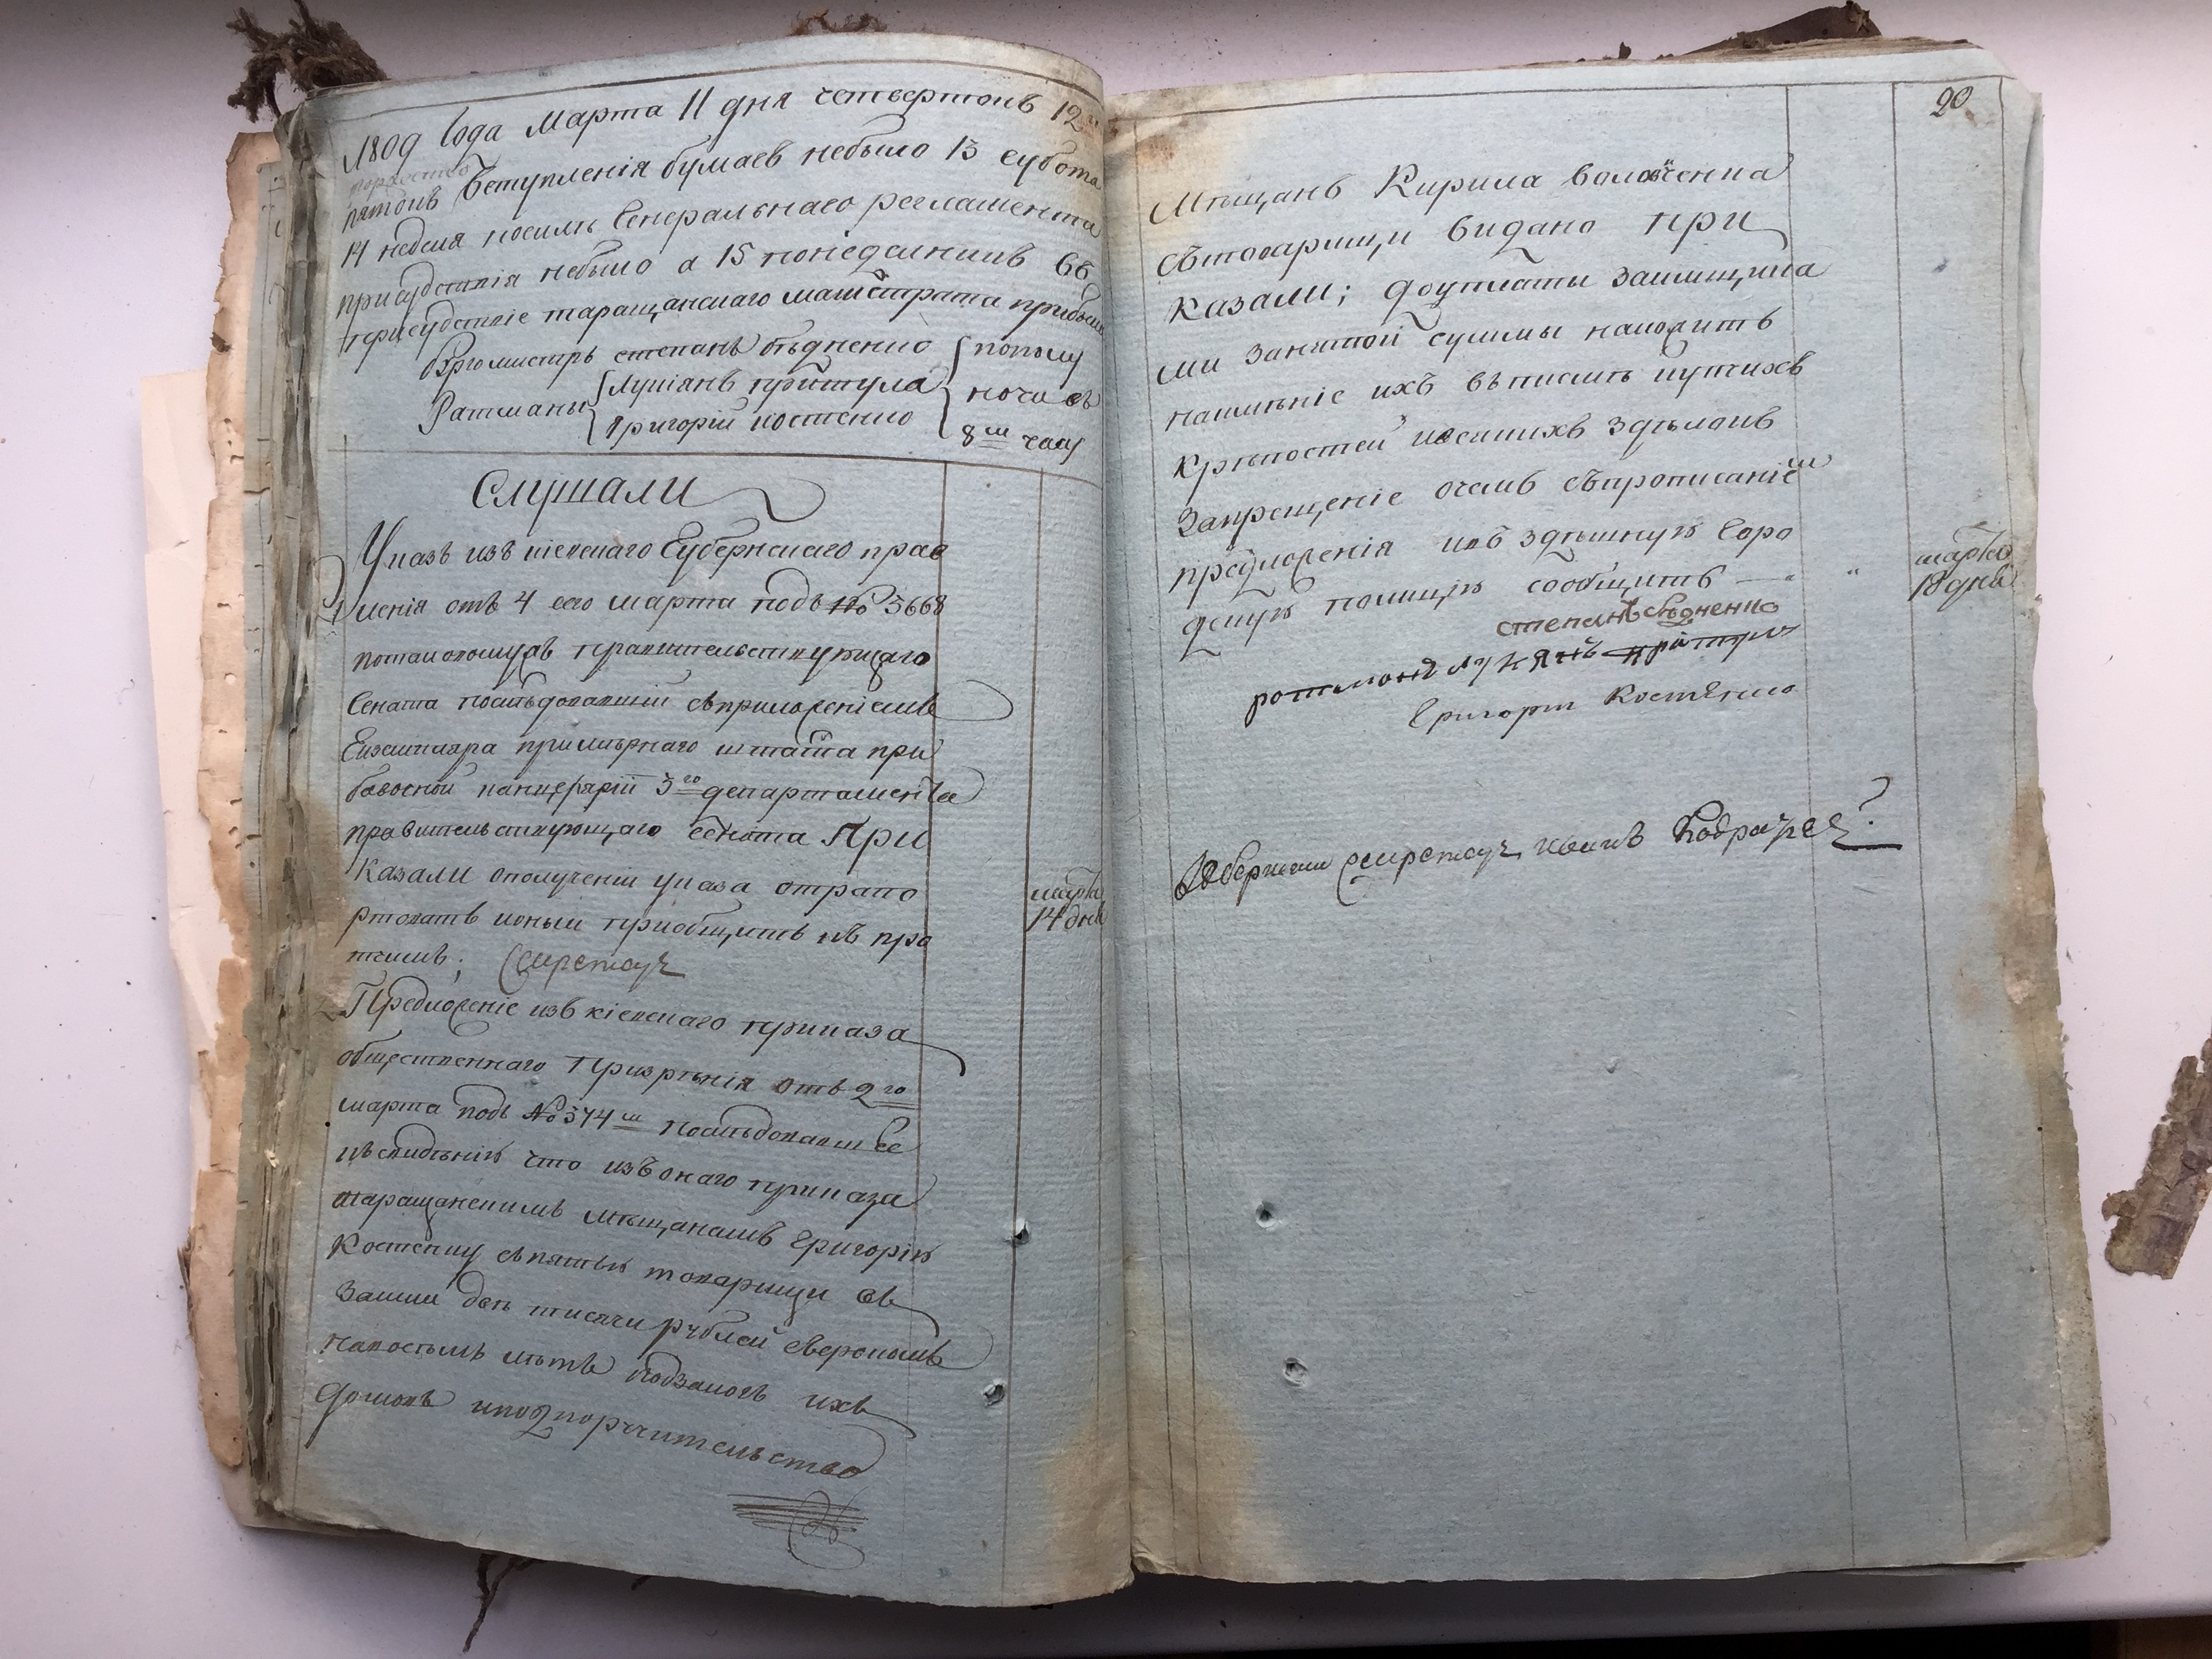 1809 Года Марта 11 дня четвертокъ 12
пятокъ вступленія бумагъ небыло 13 субота
14 неделя посилѣ Генеральнаго регламента
присудствія небыло а 15 понедѣлникъ въ
присудствіе таращанскаго магистрата прибыли
Бургомистръ степанъ бѣдненко пополу
Ратманы Лукіанъ притула ночи въ
Григорій костенко 8м часу
Слушали
1 Указъ изъ кіевскаго Губернскаго прав
ленія отъ 4 сего марта подъ № 3668
потаковомужъ правительствующаго
Сената послѣдовавшій съприложеніемъ
Екземпляра примѣрнаго штата при
бавочной канцелярій 3го департамента
правительствующаго сената При
казали ополученіи указа отрапо
ртовать ионый пріобщить къ про
тчимъ; Секретарь
марта
14 дня
2 Предложеніе изъ кіевскаго приказа
общественнаго Призрѣнія отъ 2го
марта подъ № 374м послѣдовавшее
късвидѣнію что изъ онаго приказа
таращанскимъ мѣщанамъ Григорію
Костенку съпятью товарищи въ
Заими двѣ тисячи рублей съсрокомъ
навосѣмь лѣтъ подзалогъ ихъ
Домовъ иподпоручительство
20
Мѣщанъ Кирила
сътоварищи видано При
казали; доуплаты заимщика
ми занятой суммы наложить
наимѣніе ихъ въписмѣ
Крѣпостей
Запрещеніе очемъ съпрописаніем
предложенія въ здѣшную Горо
дскую полицію сообщить —
марта
18 дня
степанъ бѣдненко
ратманъ лукянъ притула
Григорій Костенко
Губернскій секретарь